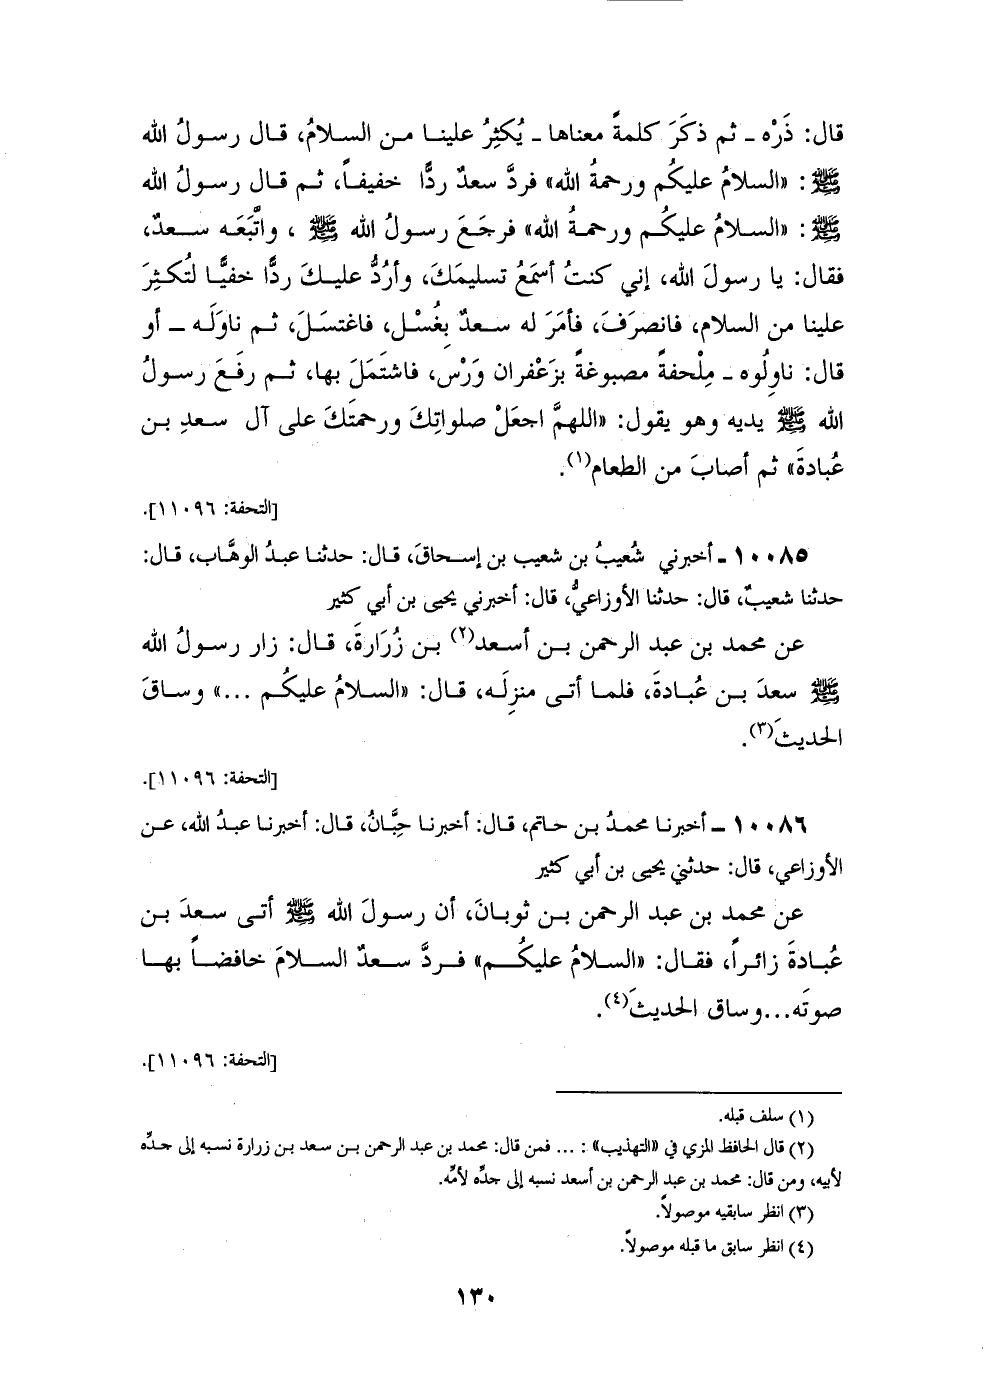 قال: ذَرْه ـ ثم ذكَرَ كلمةً معناها ـ يُكثِرُ علينا من السلامُ، قال رسولُ الله
ﷺ: «السلامُ عليكُم ورحمةُ الله» فردَّ سعدٌ ردًّا خفيفاً، ثم قال رسولُ الله
ﷺ: «السلامُ عليكُم ورحمةُ الله» فرجَعَ رسولُ الله ﷺ ، واتَّبَعَه سعدٌ،
فقال: يا رسولَ الله، إني كنتُ أسمَعُ تسليمَكَ، وأرُدُّ عليكَ ردًّا خفيًّا لتُكثِرَ
علينا من السلام، فانصرَفَ، فأمَرَ له سعدٌ بِغُسْل، فاغتسَلَ، ثم ناوَلَه ـ أو
قال: ناولُوه ـ مِلْحفةً مصبوغةً بزَعْفران وَرْس، فاشتَمَلَ بها، ثم رفَعَ رسولُ
الله ﷺ يديه وهو يقول: «اللهمَّ اجعَلْ صلواتِكَ ورحمتَكَ على آل سعدِ بن
عُبادةَ» ثم أصابَ من الطعام(١).
[التحفة: ١١٠٩٦].
١٠٠٨٥ ـ أخبرني شُعيبُ بن شعيب بن إسحاقَ، قال: حدثنا عبدُ الوهَّاب، قال:
حدثنا شعيبٌ، قال: حدثنا الأوزاعيُّ، قال: أخبرني يحيى بن أبي كثير
عن محمد بن عبد الرحمن بن أسعد(٢) بن زُرَارةَ، قال: زار رسولُ الله
ﷺ سعدَ بن عُبادةَ، فلما أتى منزِلَه، قال: «السلامُ عليكُم ...» وساقَ
الحديثَ(٣).
[التحفة: ١١٠٩٦].
١٠٠٨٦ ـ أخبرنا محمدُ بن حاتم، قال: أخبرنا حِبَّانُ، قال: أخبرنا عبدُ الله، عن
الأوزاعي، قال: حدثني يحيى بن أبي كثير
عن محمد بن عبد الرحمن بن ثوبانَ، أن رسولَ الله ﷺ أتى سعدَ بن
عُبادةَ زائراً، فقال: «السلامُ عليكُم» فردَّ سعدٌ السلامَ خافضاً بها
صوتَه...وساق الحديثَ(٤).
[التحفة: ١١٠٩٦].
(١) سلف قبله.
(٢) قال الحافظ المزي في «التهذيب» : ... فمن قال: محمد بن عبد الرحمن بن سعد بن زرارة نسبه إلى جدِّه
لأبيه، ومن قال: محمد بن عبد الرحمن بن أسعد نسبه إلى جدِّه لأمِّه.
(٣) انظر سابقيه موصولاً.
(٤) انظر سابق ما قبله موصولاً.
١٣٠